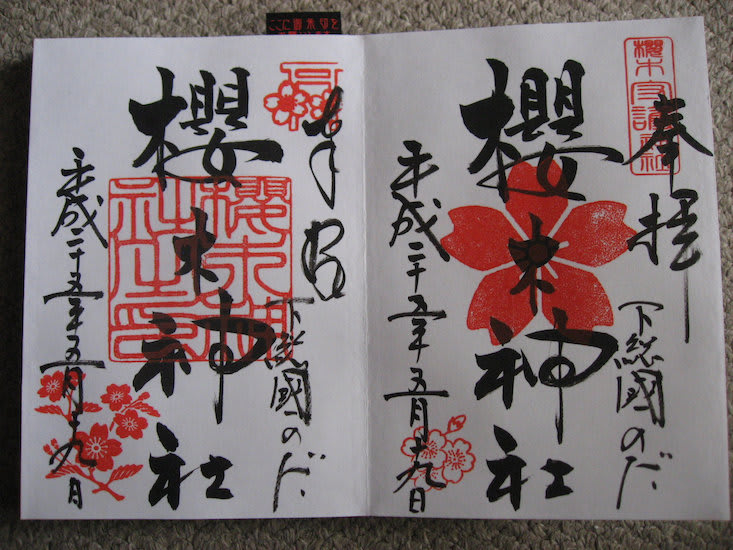 ここに御朱印を
奉拝
下総國のだ
櫻木神社
平成二十五年五月十九日
奉拝
下総國のだ
櫻木神社
平成二十五年五月十九日